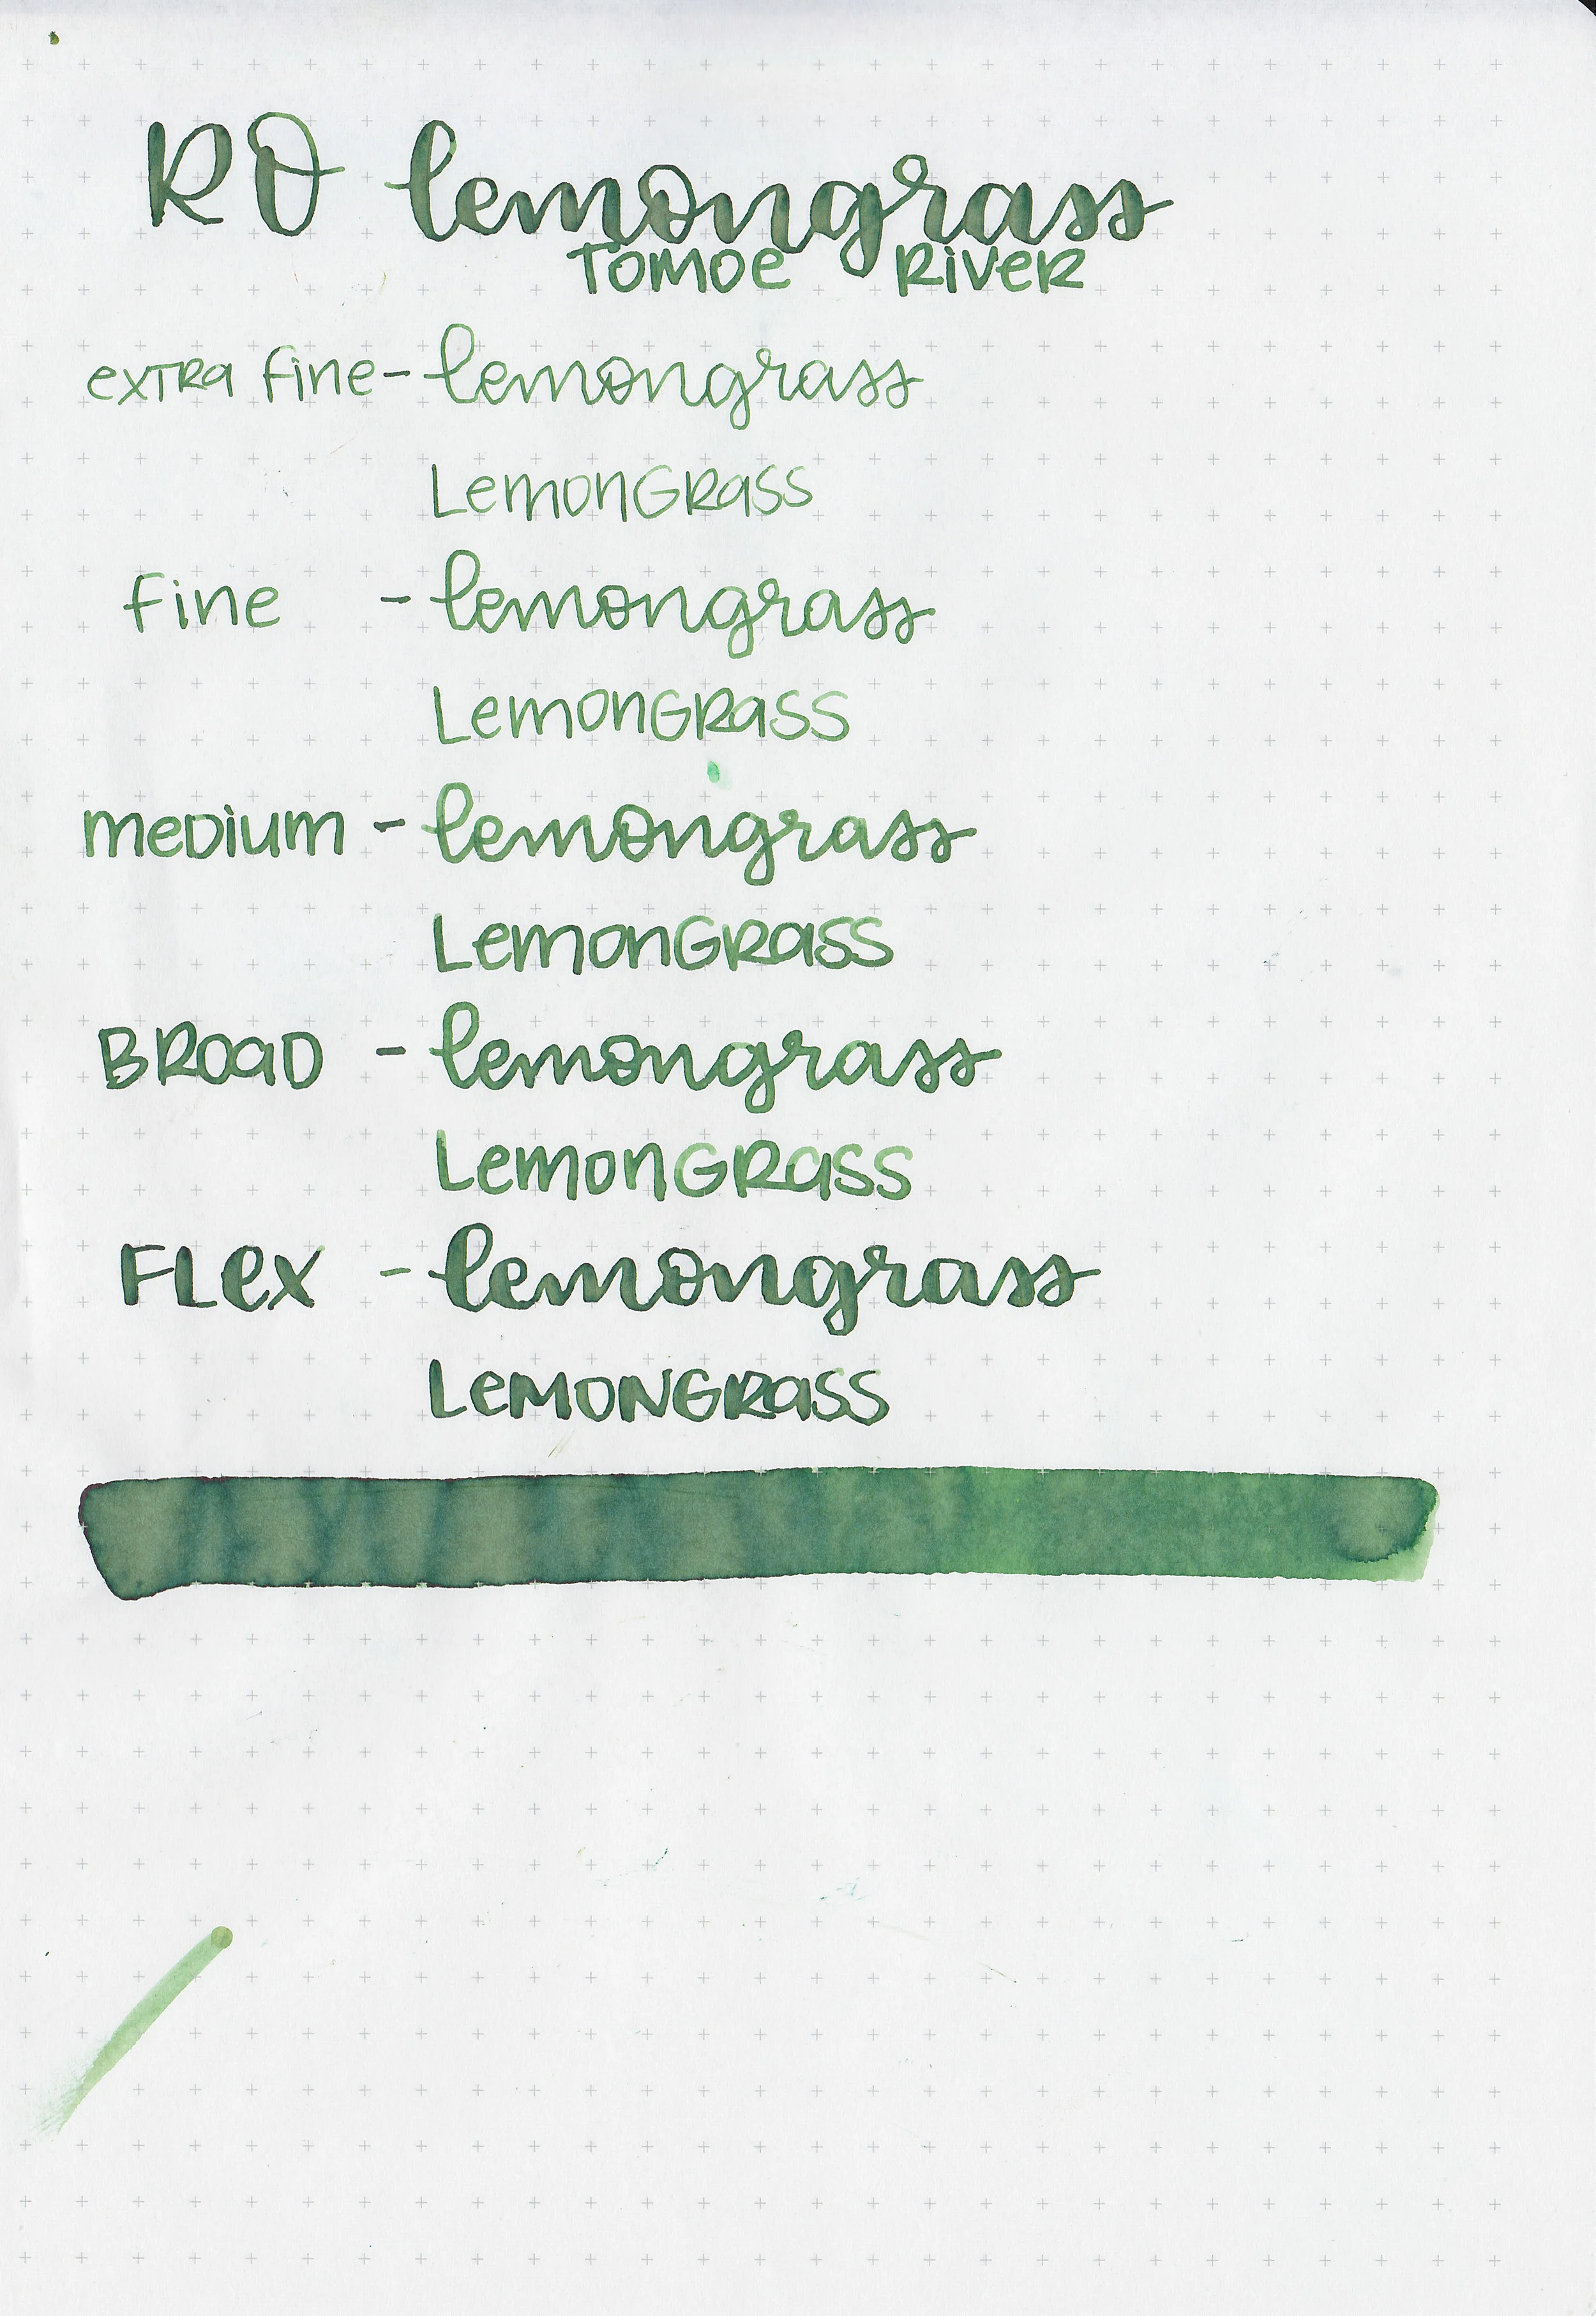 RO lemongrass
Tomoe River
extra fine - lemongrass
LemonGRass
fine - lemongrass
LemonGRass
meDium - lemongrass
LemonGRass
BRoaD - lemongrass
LemonGRass
FLex - lemongrass
LeMONGRaSS